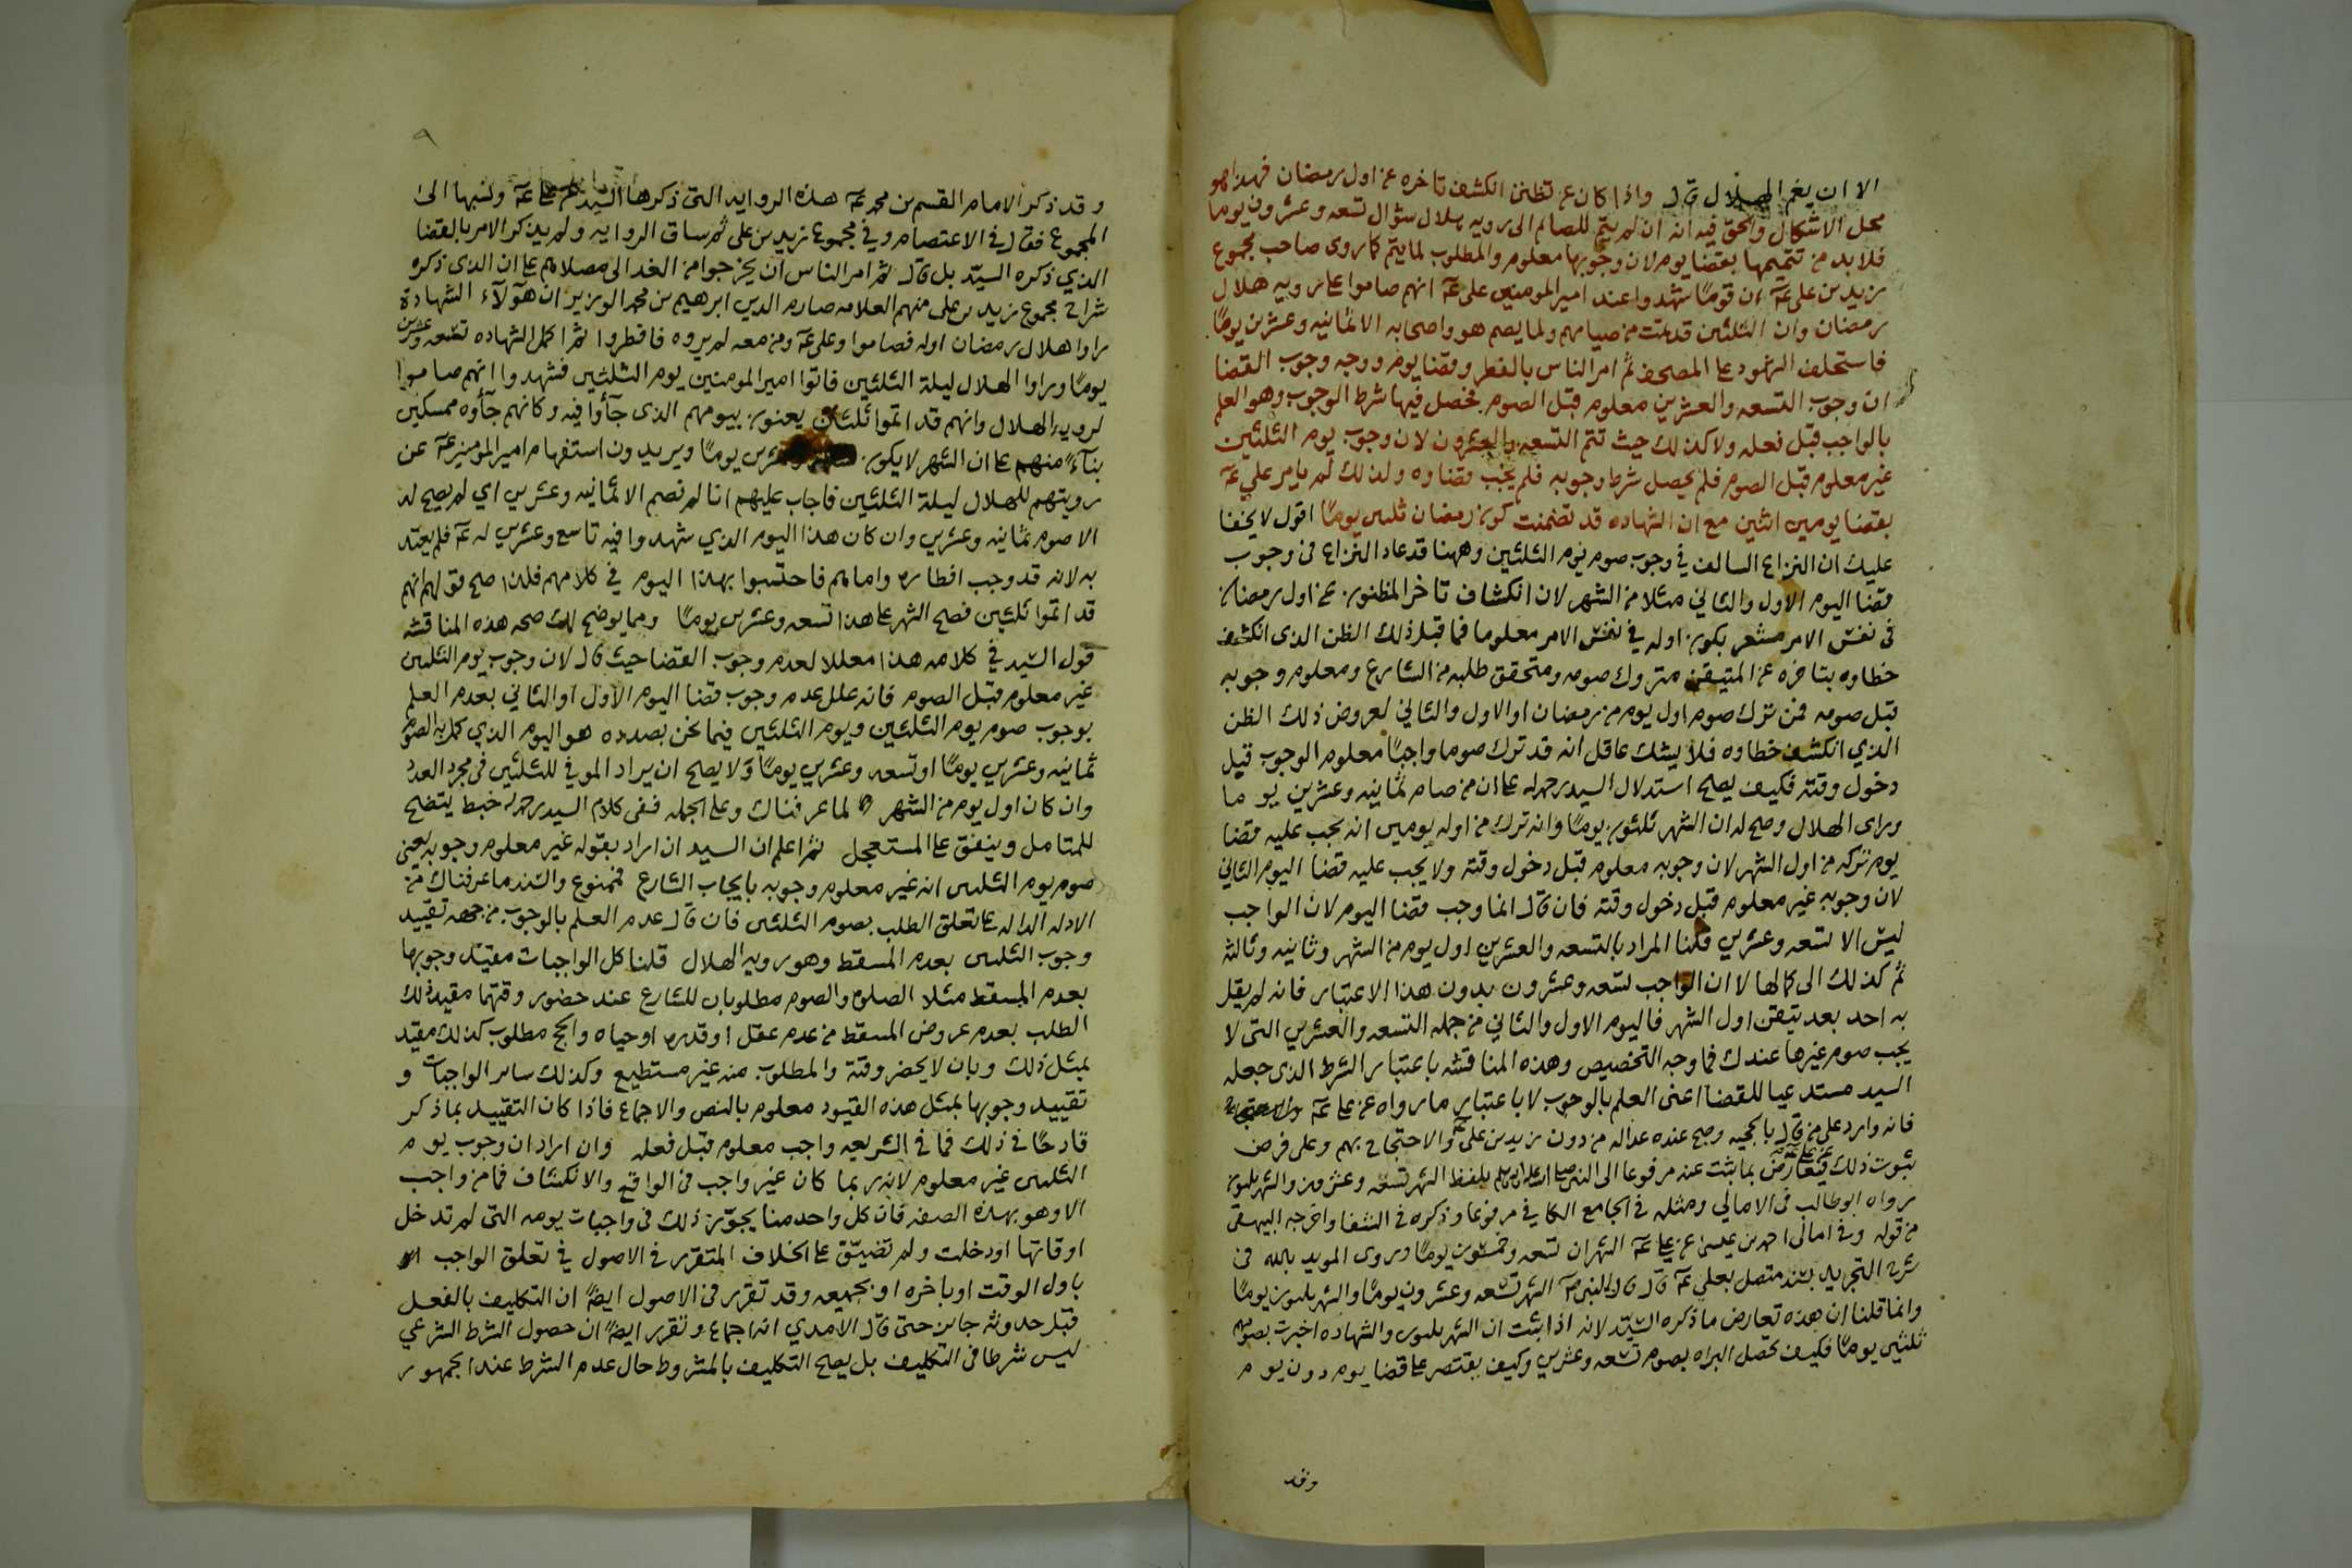 الا ان يغم الهلال قال واذا كان عن تظنن انكشف تاخره عن اول رمضان فهذا هو
محل الاشكال والحق فيه انه ان لم يتم للصائم الى رويه هلال شوال تسعه وعشرون يوما
فلا بد من تتميمها بقضا يوم لان وجوبها معلوم والمطلوب لما يتم كما روى صاحب مجموع
زيد بن على عم ان قوما شهدوا عند امير المومنين على عم انهم صاموا على رويه هلال
رمضان وان الثلثين قد تمت من صيامهم ولما يصم هو واصحابه الا ثمانيه وعشرين يومًا
فاستحلف الشهود على المصحف ثم امر الناس بالفطر وقضا يوم ووجه وجوب القضا
ان وجوب التسعه والعشرين معلوم قبل الصوم فحصل فيها شرط الوجوب وهو العلم
بالواجب قبل فعله ولا كذلك حيث تتم التسعه والعشرون لان وجوب يوم الثلثين
غير معلوم قبل الصوم فلم يحصل شرط وجوبه فلم يجب قضاوه ولذلك لم يامر علي عم
بقضا يومين اثنين مع ان الشهاده قد تضمنت كون رمضان ثلثين يومًا اقول لا يخفا
عليك ان النزاع السالف في وجوب صوم يوم الثلثين وههنا قد عاد النزاع في وجوب
قضا اليوم الاول والثاني مثلا من الشهر لان انكشاف تاخر المظنون عن اول رمضان
في نفس الامر مشعر بكون اوله في نفس الامر معلوما فما قبل ذلك الظن الذى انكشف
خطاوه بتاخره عن المتيقن متروك صومه ومتحقق طلبه من الشارع ومعلوم وجوبه
قبل صومه فمن ترك صوم اول يوم من رمضان او الاول والثاني لعروض ذلك الظن
الذي انكشف خطاوه فلا يشك عاقل انه قد ترك صوما واجبًا معلوم الوجوب قبل
دخول وقته فكيف يصلح استدلال السيد رحمه الله على ان من صام ثمانيه وعشرين يوما
وراى الهلال وصح له ان الشهر ثلثون يومًا وانه ترك من اوله يومين انه يجب عليه قضا
يوم تركه من اول الشهر لان وجوبه معلوم قبل دخول وقته ولا يجب عليه قضا اليوم الثاني
لان وجوبه غير معلوم قبل دخول وقته فان قال انما وجب قضا اليوم لان الواجب
ليس الا تسعه وعشرين قلنا المراد بالتسعه والعشرين اول يوم من الشهر وثانيه وثالثه
ثم كذلك الى كمالها لا ان الواجب تسعه وعشرون بدون هذا الاعتبار فانه لم يقل
به احد بعد تيقن اول الشهر فاليوم الاول والثاني من جمله التسعه والعشرين التى لا
يجب صوم غيرها عندك فما وجه التخصيص وهذه المناقشه باعتبار الشرط الذى جعله
السيد مستدعيا للقضا اعنى العلم بالوجوب لا باعتبار ما رواه عن على عم
فانه وارد على من قال بالحجيه وصح عنده عداله من دون زيد بن على والاحتجاج بهم وعلى فرض
ثبوت ذلك فيعارض بما ثبت عنه مرفوعا الى النبي صلى الله عليه وسلم بلفظ الشهر تسعه وعشرون والشهر ثلثون
رواه ابو طالب فى الامالي ومثله فى الجامع الكافي مرفوعا وذكره فى الشفا واخرجه البيهقى
من قوله وفى امالى احمد بن عيسى عن على عم الشهران تسعه وخمسون يومًا وروى المويد بالله فى
شرح التجريد بسند متصل بعلي عم قال قال النبى صلم الشهر تسعه وعشرون يومًا والشهر ثلثون يومًا
وانما قلنا ان هذه تعارض ما ذكره السيّد لانه اذا ثبت ان الشهر ثلثون والشهاده اخبرت بصومهم
ثلثين يومًا فكيف تحصل البراه بصوم تسعه وعشرين وكيف يقتصر على قضا يوم دون يوم
وقد
٩
وقد ذكر الامام القسم بن محمد عم هذه الروايه التى ذكرها السيد عن على عم ونسبها الى
المجموع فقال فى الاعتصام وفي مجموع زيد بن على ثم ساق الروايه ولم يذكر الامر بالقضا
الذي ذكره السيّد بل قال ثم امر الناس ان يخرجوا من الغد الى مصلاهم على ان الذى ذكره
شراح مجموع زيد بن على منهم العلامه صارم الدين ابرهيم بن محمد الوزير ان هولآء الشهادة
راوا هلال رمضان اوله فصاموا وعلى عم ومن معه لم يروه فافطروا ثم اكمل الشهاده تسعه وعشرين
يومًا وراوا الهلال ليلة الثلثين فاتوا امير المومنين يوم الثلثين فشهدوا انهم صاموا
لرويه الهلال وانهم قد اتموا ثلثين يعنون بيومهم الذى جآوا فيه وكانهم جآوه ممسكين
بنآءً منهم على ان الشهر لا يكون وعشرين يومًا ويريدون استفهام امير المومنين عم عن
رويتهم للهلال ليلة الثلثين فاجاب عليهم انا لم نصم الا ثمانيه وعشرين اي لم يصح له
الا صوم ثمانيه وعشرين وان كان هذا اليوم الذي شهدوا فيه تاسع وعشرين له عم فلم يعتد
به لانه قد وجب افطاره واما هم فاحتسبوا بهذا اليوم في كلامهم فلذا صح قولهم انهم
قد اتموا ثلثين فصح الشهر على هذا تسعه وعشرين يومًا ومما يوضح لك صحه هذه المناقشه
قول السّيد في كلامه هذا معللا لعدم وجوب القضا حيث قال لان وجوب يوم الثلثين
غير معلوم قبل الصوم فانه علل عدم وجوب قضا اليوم الاول او الثاني بعدم العلم
بوجوب صوم يوم الثلثين ويوم الثلثين فيما نحن بصدده هو اليوم الذي كمل به الصوم
ثمانيه وعشرين يومًا او تسعه وعشرين يومًا ولا يصلح ان يراد الموفي للثلثين فى مجرد العدد
وان كان اول يوم من الشهر لما عرفناك وعلى الجمله ففى كلام السيد رحمه الله خبط يتضح
للمتامل وينفق على المستعجل ثم اعلم ان السيد ان اراد بقوله غير معلوم وجوبه يعنى
صوم يوم الثلثين انه غير معلوم وجوبه بايجاب الشارع فممنوع والسند ما عرفناك من
الادله الداله على تعلق الطلب بصوم الثلثين فان قال عدم العلم بالوجوب من جهه تقييد
وجوب الثلثين بعدم المسقط وهو رويه الهلال قلنا كل الواجبات مقيّد وجوبها
بعدم المسقط مثلا الصلوة والصوم مطلوبان للشارع عند حضور وقتهما مقيد ذلك
الطلب بعدم عروض المسقط من عدم عقل او قدره او حياه والحج مطلوب كذلك مقيد
بمثل ذلك وبان لا يحضر وقته والمطلوب منه غير مستطيع وكذلك ساىر الواجبات و
تقييد وجوبها بمثل هذه القيود معلوم بالنص والاجماع فاذا كان التقييد بما ذكر
قادحًا فى ذلك فما فى الشريعه واجب معلوم قبل فعله وان اراد ان وجوب يوم
الثلثين غير معلوم لانه ربما كان غير واجب فى الواقع والانكشاف فما من واجب
الا وهو بهذه الصفه فان كل واحد منا يجوّز ذلك فى واجبات يومه التى لم تدخل
اوقاتها او دخلت ولم تضيّق على الخلاف المتقرر فى الاصول في تعلق الواجب
باول الوقت او باخره او بجميعه وقد تقرر فى الاصول ايضًا ان التكليف بالفعل
قبل حدوثه جائز حتى قال الامدي انه اجماع وتقرر ايضًا ان حصول الشرط الشرعي
ليس شرطا فى التكليف بل يصلح التكليف بالمشروط حال عدم الشرط عند الجمهور